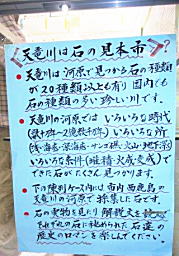 天竜川は石の見本市?
天竜川は河原で見つかる石の種類
が20種類以上も有り国内でも
石の種類の多い珍しい川です。
天竜川の河原では いろいろな時代
いろいろな所
(浅い海底・深海底・サンゴ礁・火山・地下深部
いろいろな条件(堆積・火成・変成)で
できた石がたくさん見つかります。
下の陳列ケース内には市内西鹿島の
天竜川の河原で採集した石です。
石の実物を見たり解説文を
それぞれの石に秘められた石達の
歴史のロマンを楽しんでください。